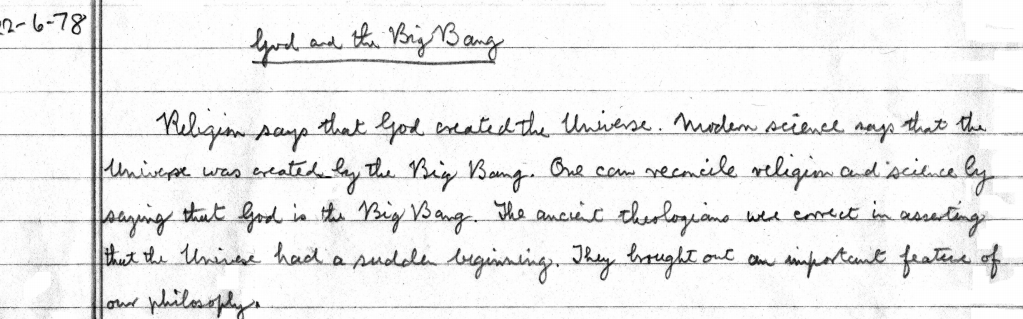 22-6-78
God and the Big Bang
Religion says that God created the Universe. Modern science says that the
Universe was created by the Big Bang. One can reconcile religion and science by
saying that God is the Big Bang. The ancient theologians were correct in asserting
that the Universe had a sudden beginning. They brought out an important feature of
our philosophy.